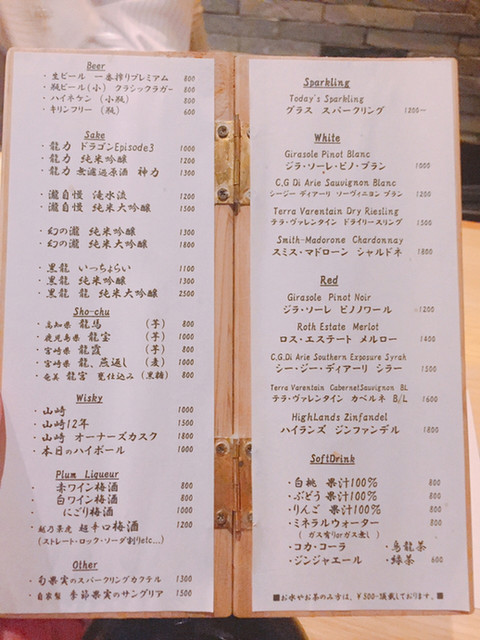 Beer
・生ビール 一番搾りプレミアム 800
・瓶ビール(小) クラシックラガー 800
・ハイネケン (小瓶) 800
・キリンフリー (瓶) 600
Sake
・龍力 ドラゴンEpisode3 1000
・龍力 純米吟醸 1200
・龍力 無濾過原酒 神力 1300
・瀧自慢 滝水流 1200
・瀧自慢 純米大吟醸 1500
・幻の瀧 純米吟醸 1300
・幻の瀧 純米大吟醸 1800
・黒龍 いっちょらい 1100
・黒龍 純米吟醸 1300
・黒龍 龍 純米大吟醸 2500
Sho-chu
・高知県 龍馬 (芋) 800
・鹿児島県 龍宝 (芋) 1000
・宮崎県 龍霞 (芋) 800
・宮崎県 龍、蒸返し (麦) 1000
・奄美 龍宮 甕仕込み (黒糖) 800
Wisky
・山崎 1000
・山崎12年 1500
・山崎 オーナーズカスク 1800
・本日のハイボール 1000
Plum Liqueur
・赤ワイン梅酒 800
・白ワイン梅酒 800
・にごり梅酒 1000
・越乃景虎 超辛口梅酒 1200
(ストレート・ロック・ソーダ割りetc...)
Other
・旬果実のスパークリングカクテル 1300
・自家製 季節果実のサングリア 1500
Sparkling
Today's Sparkling
グラス スパークリング 1200〜
White
Girasole Pinot Blanc
ジラ・ソーレ・ピノ・ブラン 1000
C.G Di Arie Sauvignon Blanc
シージー ディアーリ ソーヴィニヨン ブラン 1200
Terra Varentain Dry Riesling
テラ・ヴァレンタイン ドライリースリング 1500
Smith-Madorone Chardonnay
スミス・マドローン シャルドネ 1800
Red
Girasole Pinot Noir
ジラ・ソーレ ピノノワール 1200
Roth Estate Merlot
ロス・エステート メルロー 1400
C.G.Di Arie Southern Exposure Syrah
シー・ジー・ディアーリ シラー 1500
Terra Varentain CabernetSauvignon BL
テラ・ヴァレンタイン カベルネ B/L 1600
HighLands Zinfandel
ハイランズ ジンファンデル 1800
SoftDrink
・白桃 果汁100% 800
・ぶどう 果汁100% 800
・りんご 果汁100% 800
・ミネラルウォーター 800
( ガス有りorガス無し )
・コカ・コーラ ・烏龍茶
・ジンジャエール ・緑茶 600
■お水やお茶のみの方は、¥500-頂戴しております。■